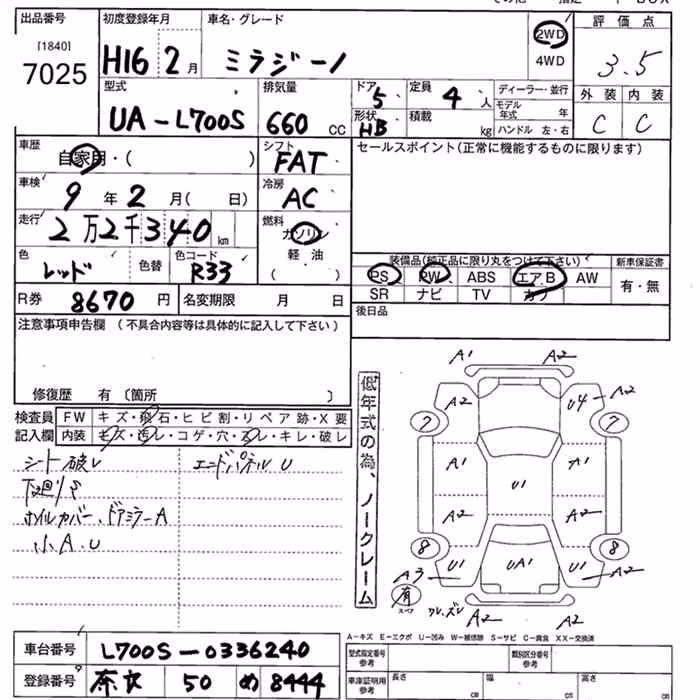 出品番号 初度登録年月 車名・グレード 評価点
[1840]
7025 H16 2月 ミラジーノ 2WD 4WD 3.5
型式 排気量 ドア 5 定員 4人 ディーラー・並行 外装 内装
UA-L700S 660cc 形状 HB 積載 kg モデル年式 年 C C
ハンドル 左・右
車歴 自家用・( ) シフト FAT セールスポイント(正常に機能するものに限ります)
車検 9年2月(日) 冷房 AC
走行 2万2千340km 燃料 ガソリン
軽油
( )
色 レッド 色替 色コード R33
装備品(純正品に限り丸をつけて下さい) 新車保証書
PS PW ABS エアB AW 有・無
SR ナビ TV カワ
R券 8670円 名変期限 月 日 後日品
注意事項申告欄 (不具合内容等は具体的に記入して下さい)
修復歴 有〔箇所 〕
検査員 FW キズ・飛石・ヒビ割・リペア跡・X要
記入欄 内装 キズ・汚レ・コゲ・穴・スレ・キレ・破レ
シート破レ エンドパネルU
下廻りS
ホイルカバー、ドアミラーA
小A.U
低年式の為、ノークレーム
A1 A2
A2 U4 A2
7 7
A1 A1
U1
A2 A2
8 8
U1 UA1 U1
A3 A2
有
スペア
A2 A2
A-キズ E-エクボ U-凹み W-補修跡 S-サビ C-腐食 XX-交換済
車台番号 L700S-0336240
登録番号 奈良 50 め 8444
型式指定番号 参考 類別区分番号 参考
車庫証明用 参考 長さ cm 幅 cm 高さ cm